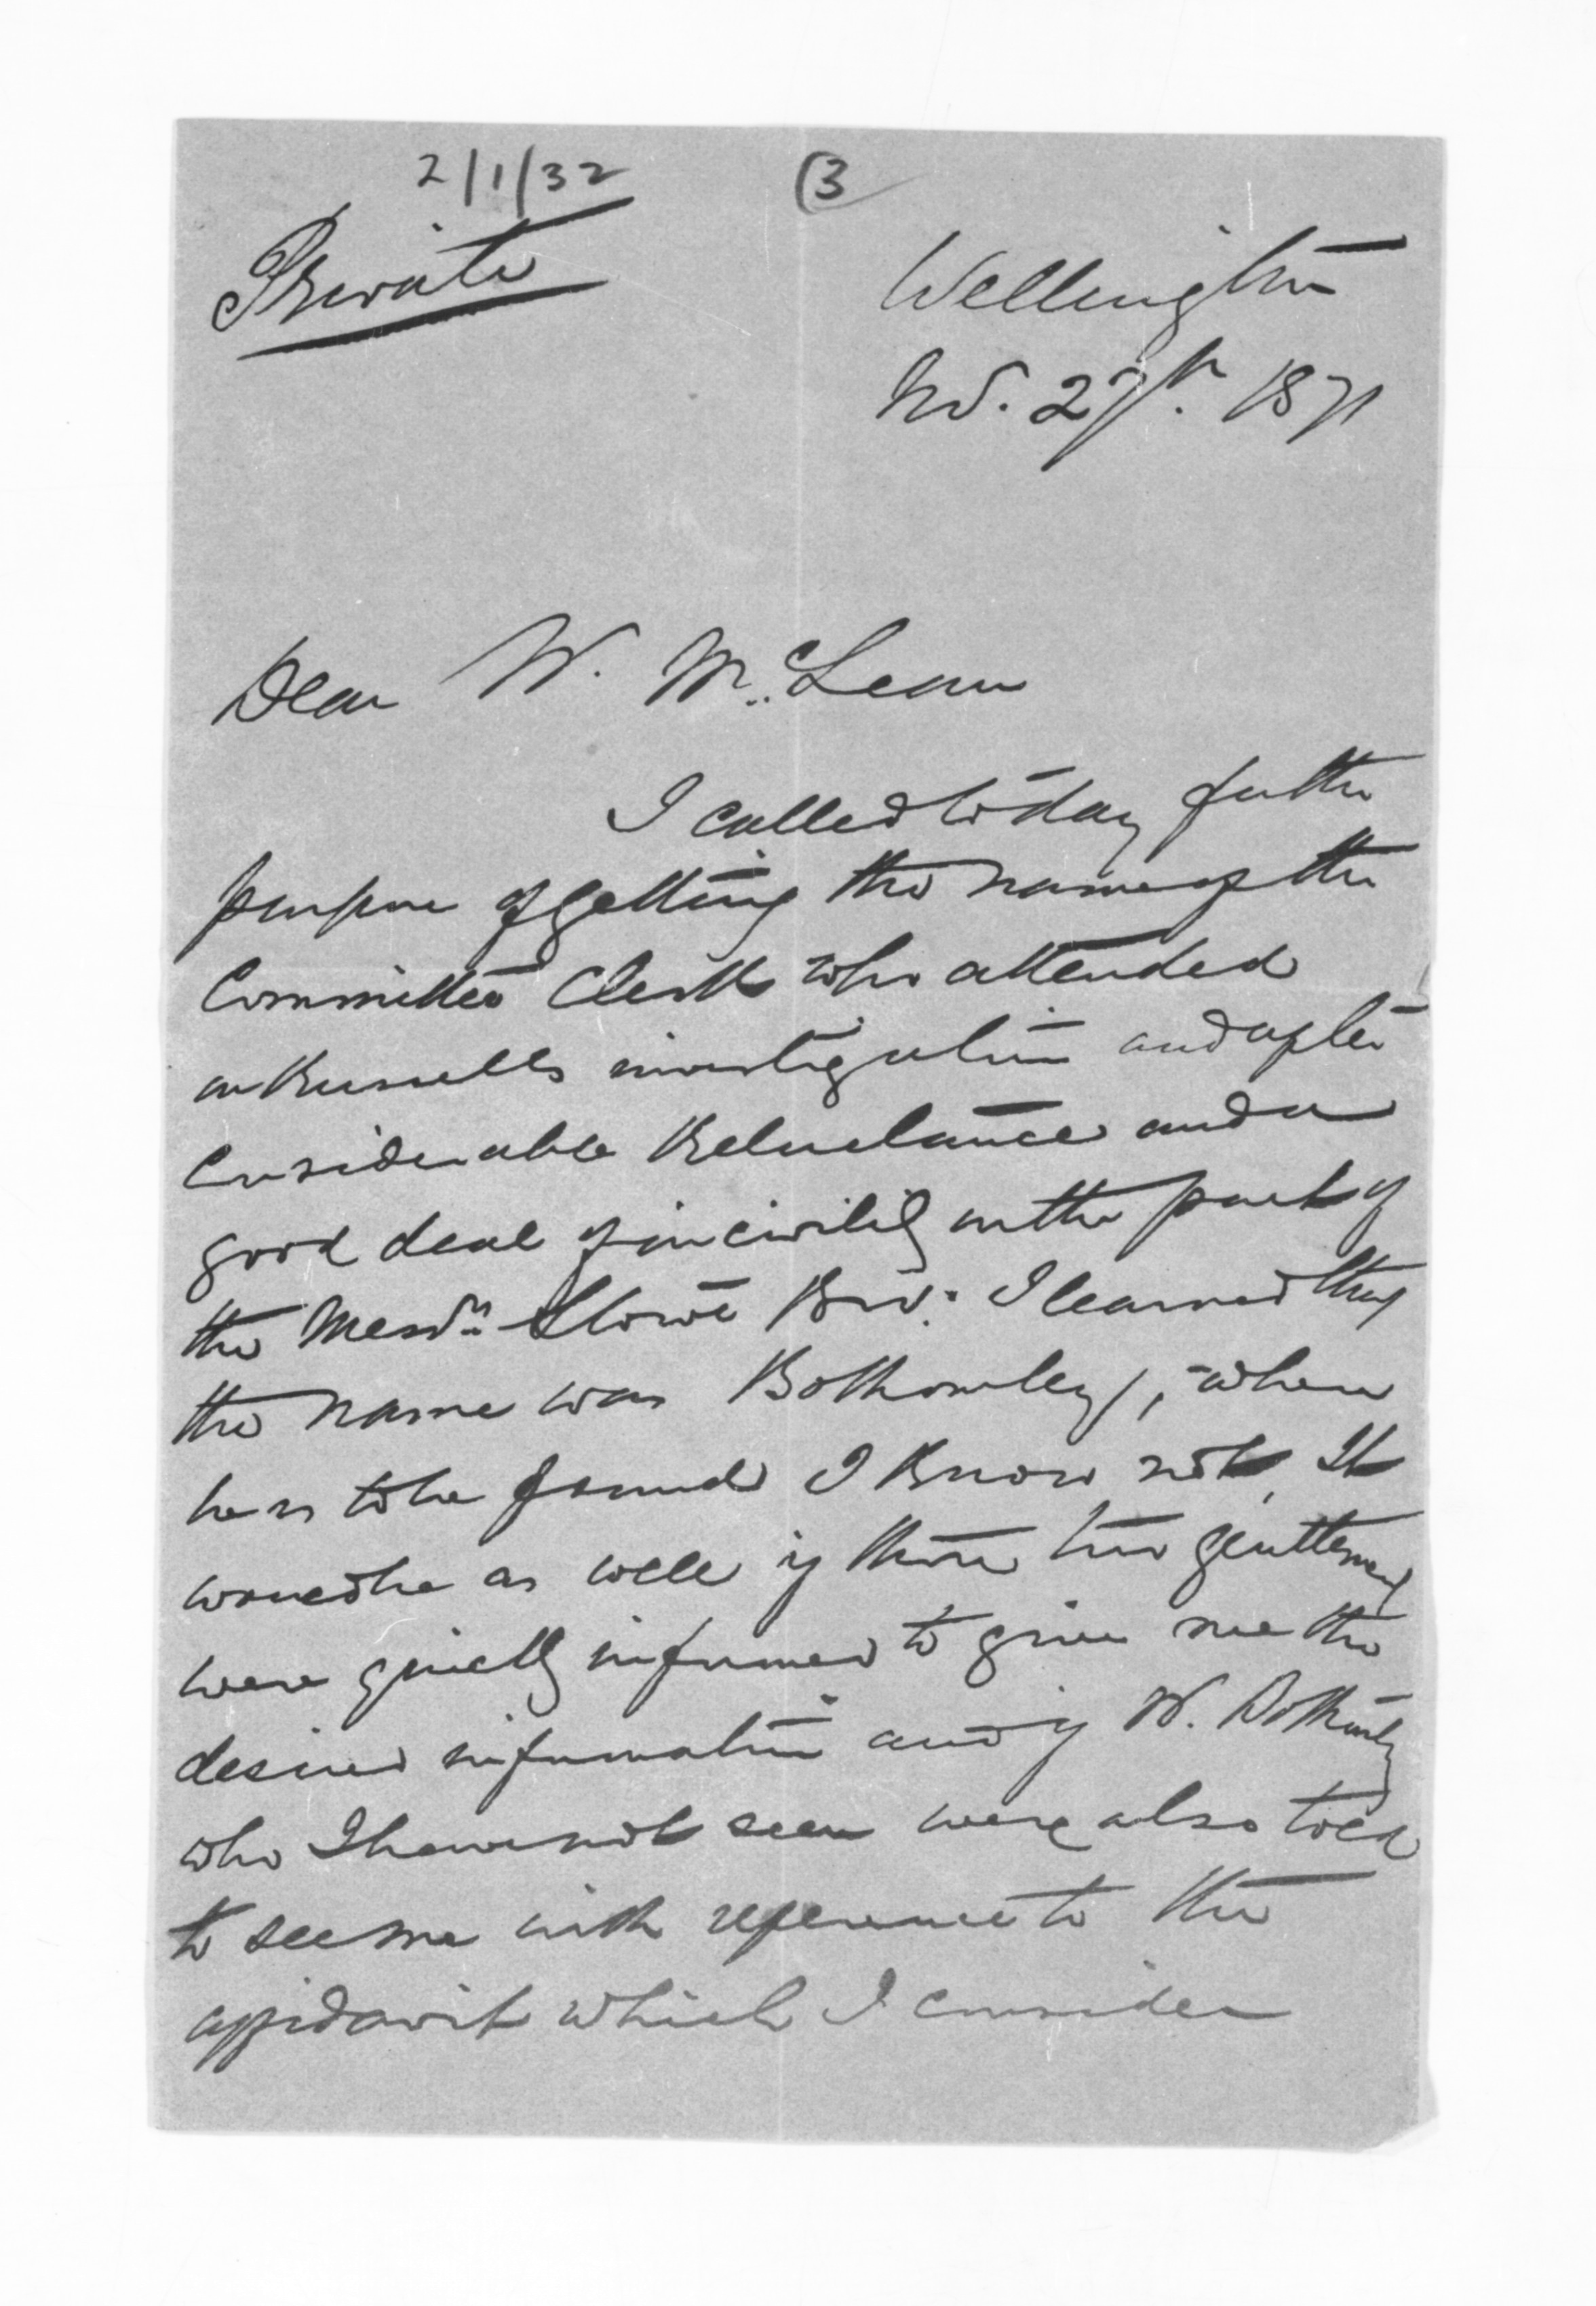 2/1/32 (3
Private
Wellington
Nov. 27th. 1871
Dear Mr. McLean
I called to day for the
purpose of getting the name of the
Committee Clerk who attended
on Russells investigation and after
Considerable Reluctance and a
good deal of incivility on the part of
the Messrs Stowe Bros. I learned that
the name was Bothamley, where
he is to be found I Know not, It
would be as well if these two gentlemen
were quietly informed to give me the
desired information and if Mr. Bothamley
who I have not seen were also told
to see me with reference to the
affidavit which I consider